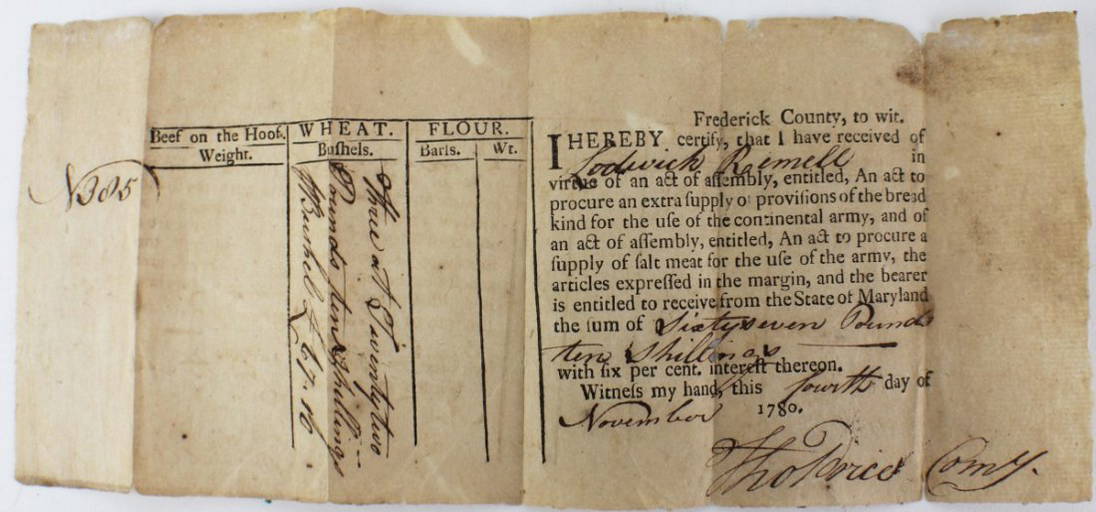 No 85
Beef on the Hoof.
Weight.
WHEAT.
Buſhels.
FLOUR.
Barls. Wt.
Three at Twenty two
Pounds ten shillings
⅌ Bushel £ 67. 10
Frederick County, to wit.
I HEREBY certify, that I have received of
Lodwick Remell in
virtue of an act of aſſembly, entitled, An act to
procure an extra ſupply of proviſions of the bread
kind for the uſe of the continental army, and of
an act of aſſembly, entitled, An act to procure a
ſupply of ſalt meat for the uſe of the army, the
articles expreſſed in the margin, and the bearer
is entitled to receive from the State of Maryland
the ſum of Sixty seven Pounds
ten Shillings
with ſix per cent. intereſt thereon.
Witneſs my hand, this fourth day of
November 1780.
Tho Price Comy.